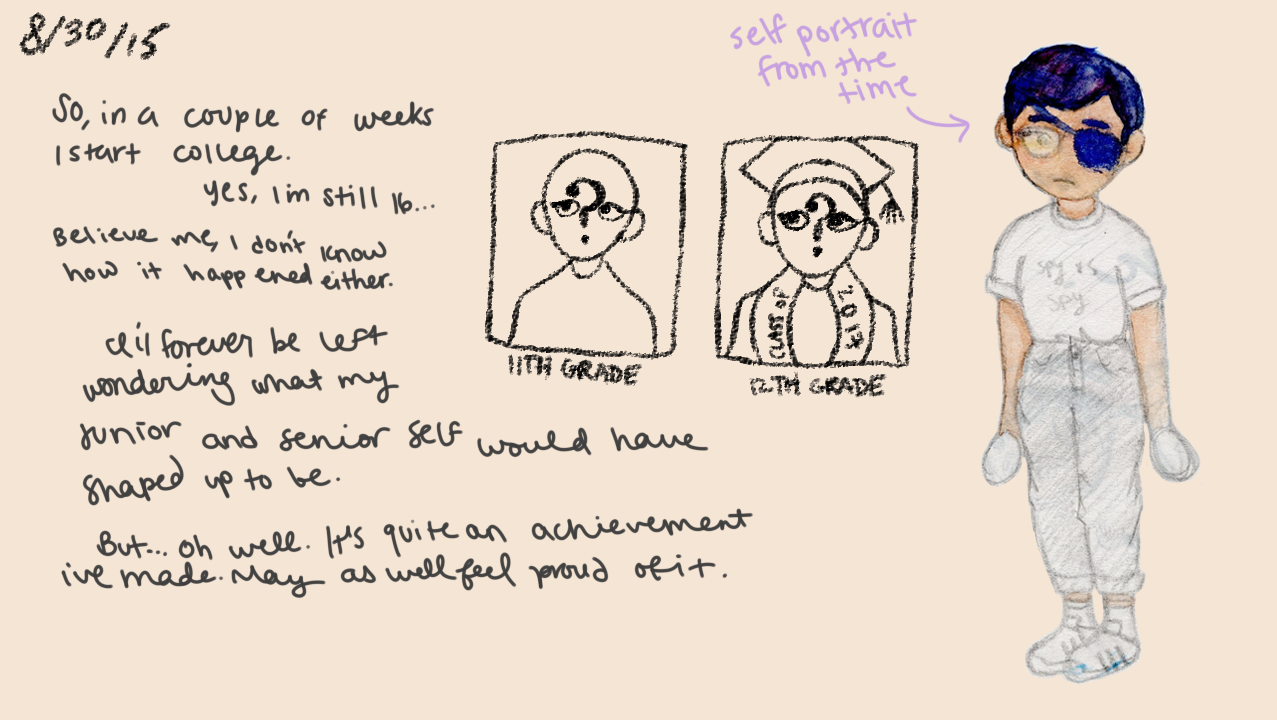 8/30/15
So, in a couple of weeks
I start college.
yes, I'm still 16...
Believe me, I don't know
how it happened either.
I'll forever be left
wondering what my
junior and senior self would have
shaped up to be.
But... oh well. It's quite an achievement
ive made. May as well feel proud of it.
?
11TH GRADE
?
CLASS OF
201
12TH GRADE
self portrait
from the
time
spy vs
spy